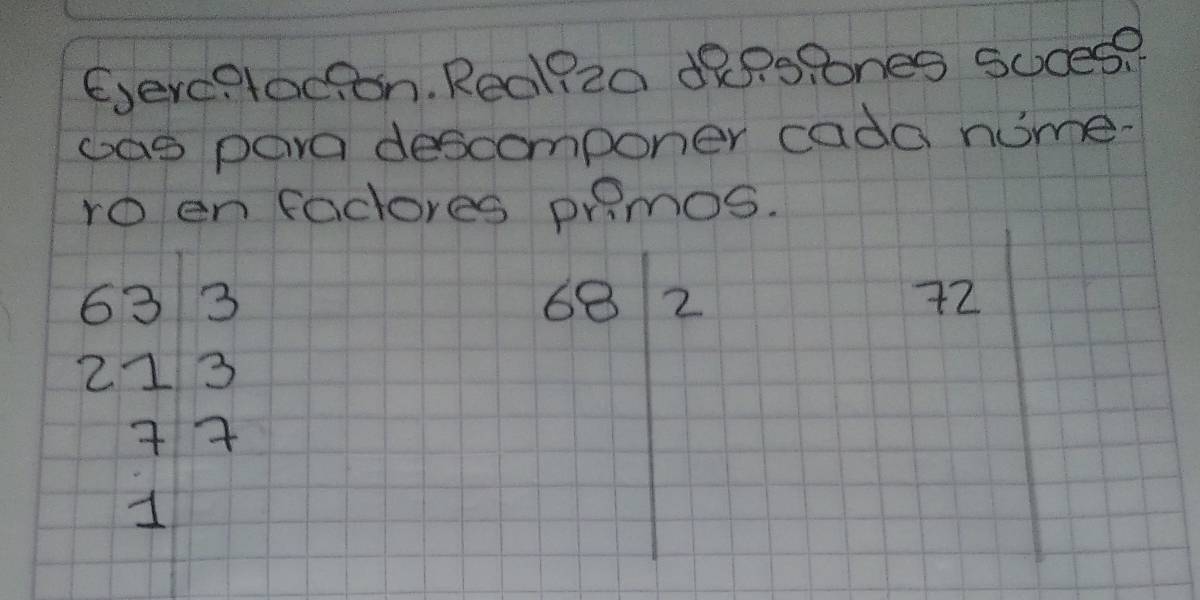 Ejercitación. Realiza divisiones sucesi-
vas para descomponer cada núme-
ro en factores primos.
63 3 68 2 72
21 3
7 7
1